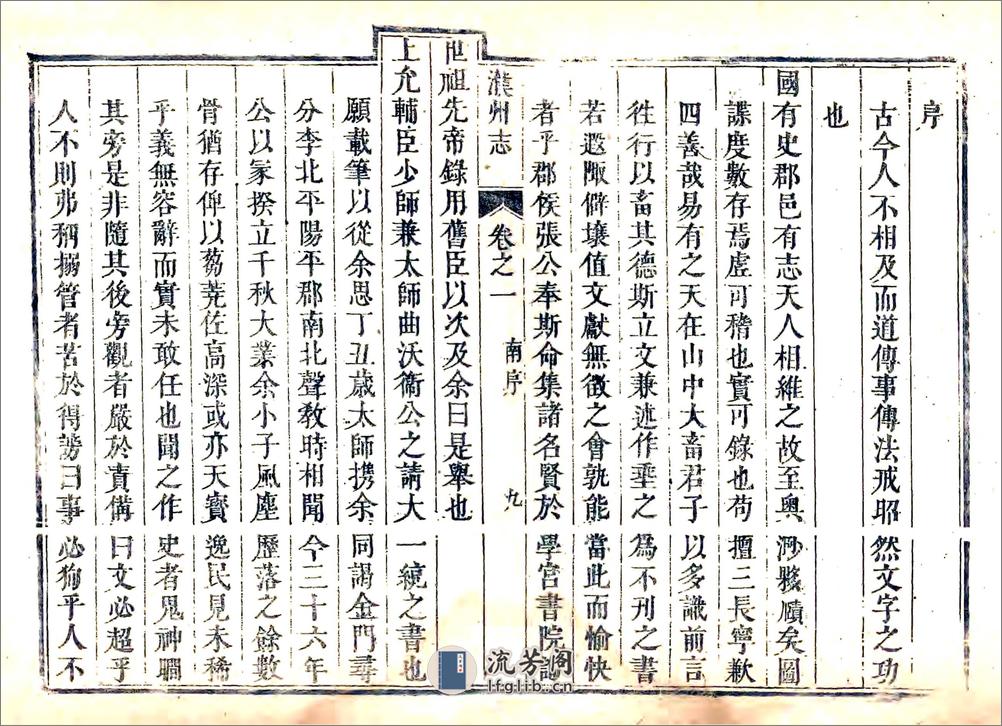 序
古今人不相及而道傳事傳法戒昭然文字之功
也
國有史郡邑有志天人相維之故至奧渺賾矣圖
諜度數存焉虛可稽也實可錄也苟擅三長寧歉
四善哉易有之天在山中大畜君子以多識前言
徃行以畜其德斯立文兼述作垂之為不刊之書
若遐陬僻壤值文獻無徵之會孰能當此而愉快
者乎郡侯張公奉斯命集諸名賢於學宮書院
濮州志 卷之一 南序 九
世祖先帝錄用舊臣以次及余曰是舉也
上允輔臣少師兼太師曲沃衞公之請大一統之書也
願載筆以從余思丁丑歲太師携余同謁金門尋
分李北平陽平郡南北聲敎時相聞今三十六年
公以家揆立千秋大業余小子風塵歷落之餘數
骨猶存俾以蒭蕘佐高深或亦天寶逸民見未稀
乎義無容辭而實未敢任也聞之作史者鬼神瞷
其旁是非隨其後旁觀者嚴於責備曰文必超乎
人不則弗稱搦管者苦於得謗曰事必狥乎人不
流芳閣
lfglib.cn